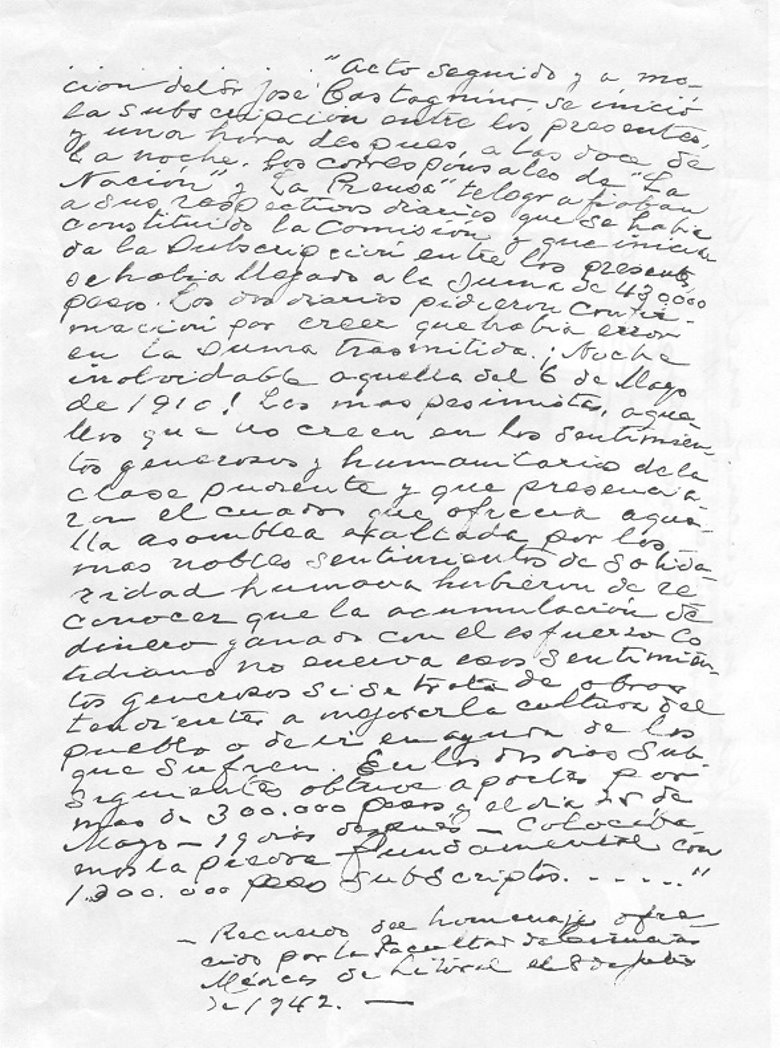 "Acto seguido y a mo-
cion del Sr José Castagnino, se inició
la subscripcion entre los presentes,
y una hora despues, a las doce de
la noche, los corresponsales de "La
Nación" y "La Prensa" telegrafiaban
a sus respectivos diarios que se habia
constituido la Comisión y que inicia
da la Subscripción entre los presentes
se habia llegado a la suma de 430.000
pesos. Los dos diarios pidieron confir-
mación por creer que habia error
en la suma trasmitida. ¡Noche
inolvidable aquella del 6 de Mayo
de 1910! Los mas pesimistas, aque-
llos que no creen en los sentimien-
tos generosos y humanitarios de la
clase pudiente y que presencia-
ron el cuadro que ofrecia aque-
lla asamblea exaltada por los
mas nobles sentimientos de solida
ridad humana hubieron de re
conocer que la acumulación de
dinero ganado con el esfuerzo co
tidiano no enerva esos sentimien-
tos generosos si se trata de obras
tendientes a mejorar la cultura del
pueblo o de ir en ayuda de los
que sufren. En los dos dias sub-
siguientes obtuve aportes por
mas de 300.000 pesos y el dia 25 de
Mayo — 19 dias después — colocába-
mos la piedra fundamental con
1.300.000 pesos subscriptos. - - - - - "
— Recuerdo del homenaje ofre-
cido por la Facultad de Ciencias
Médicas de Litoral el 8 de Julio
de 1942. —